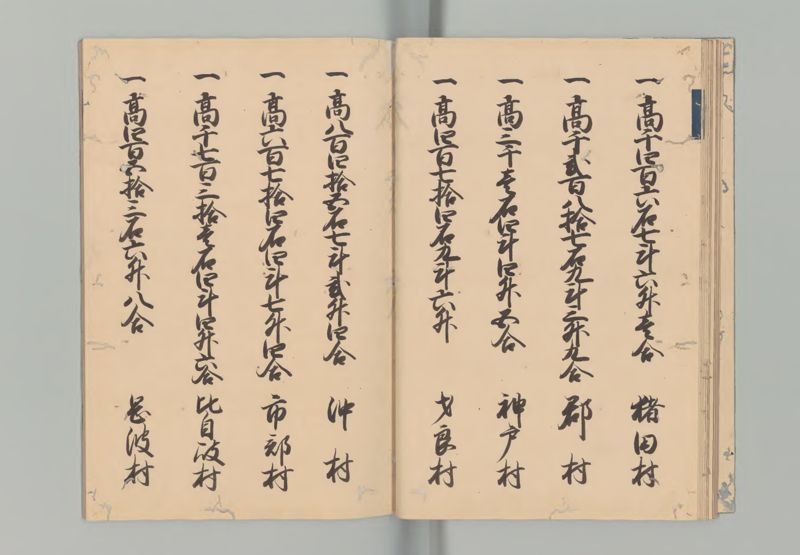 一 高千四百六石七斗六升壱合 猪田村
一 高千弐百八拾七石九斗三升九合 郡村
一 高三千壱石四斗四升五合 神戸村
一 高四百七拾四石九斗六升 才良村
一 高八百四拾五石七斗弐升四合 沖村
一 高六百七拾四石四斗七升四合 市部村
一 高千七百三拾壱石四斗四升六合 比自岐村
一 高四百六拾三石六升八合 波村